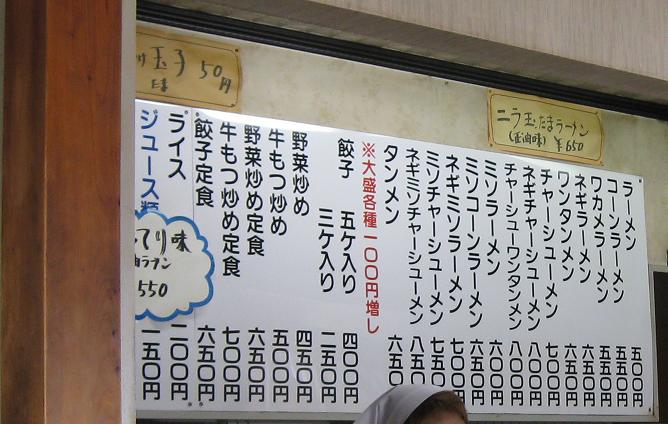 玉子 50円
たま
ニラ玉たまラーメン
(正油味) ¥650
ラーメン 五〇〇円
コーンラーメン 五五〇円
ワカメラーメン 五五〇円
ネギラーメン 六五〇円
ワンタンメン 六五〇円
チャーシューメン 七〇〇円
ネギチャーシューメン 八〇〇円
チャーシューワンタンメン 八〇〇円
ミソラーメン 六〇〇円
ミソコーンラーメン 六五〇円
ネギミソラーメン 七〇〇円
ミソチャーシューメン 七五〇
ネギミソチャーシューメン 八五〇
タンメン 六五〇
※大盛各種一〇〇円増し
餃子 五ケ入り 四〇〇円
三ケ入り 二五〇円
野菜炒め 四五〇円
牛もつ炒め 五〇〇円
野菜炒め定食 六五〇円
牛もつ炒め定食 七〇〇円
餃子定食 六五〇円
ライス 二〇〇円
ジュース類 一五〇円
てり味
550